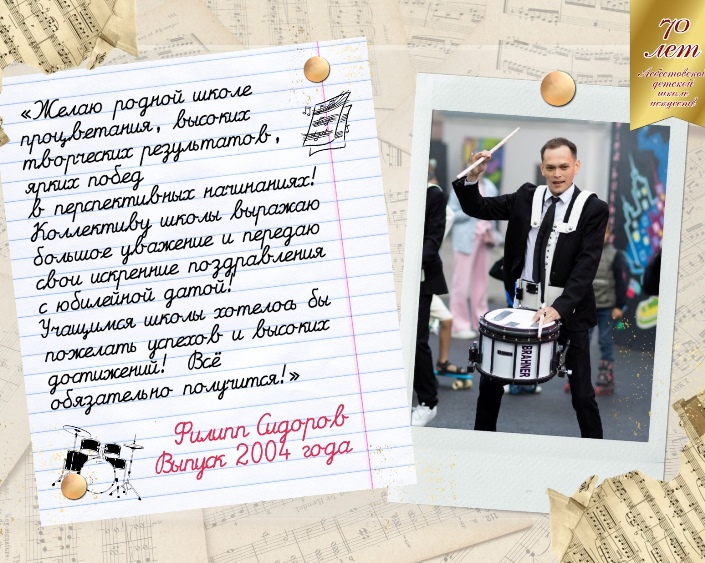 «Желаю родной школе
процветания, высоких
творческих результатов,
ярких побед
в перспективных начинаниях!
Коллективу школы выражаю
большое уважение и передаю
свои искренние поздравления
с юбилейной датой!
Учащимся школы хотелоа бы
пожелать успехов и высоких
достижений! Всё
обязательно получится!»
Филипп Сидоров
Выпуск 2004 года
BRAHNER
70
лет
Асбестовской
детской
школе
искусств